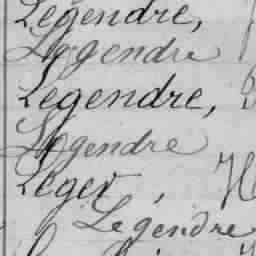 Legendre,
Legendre
Legendre,
Legendre
Leger,
Legendre